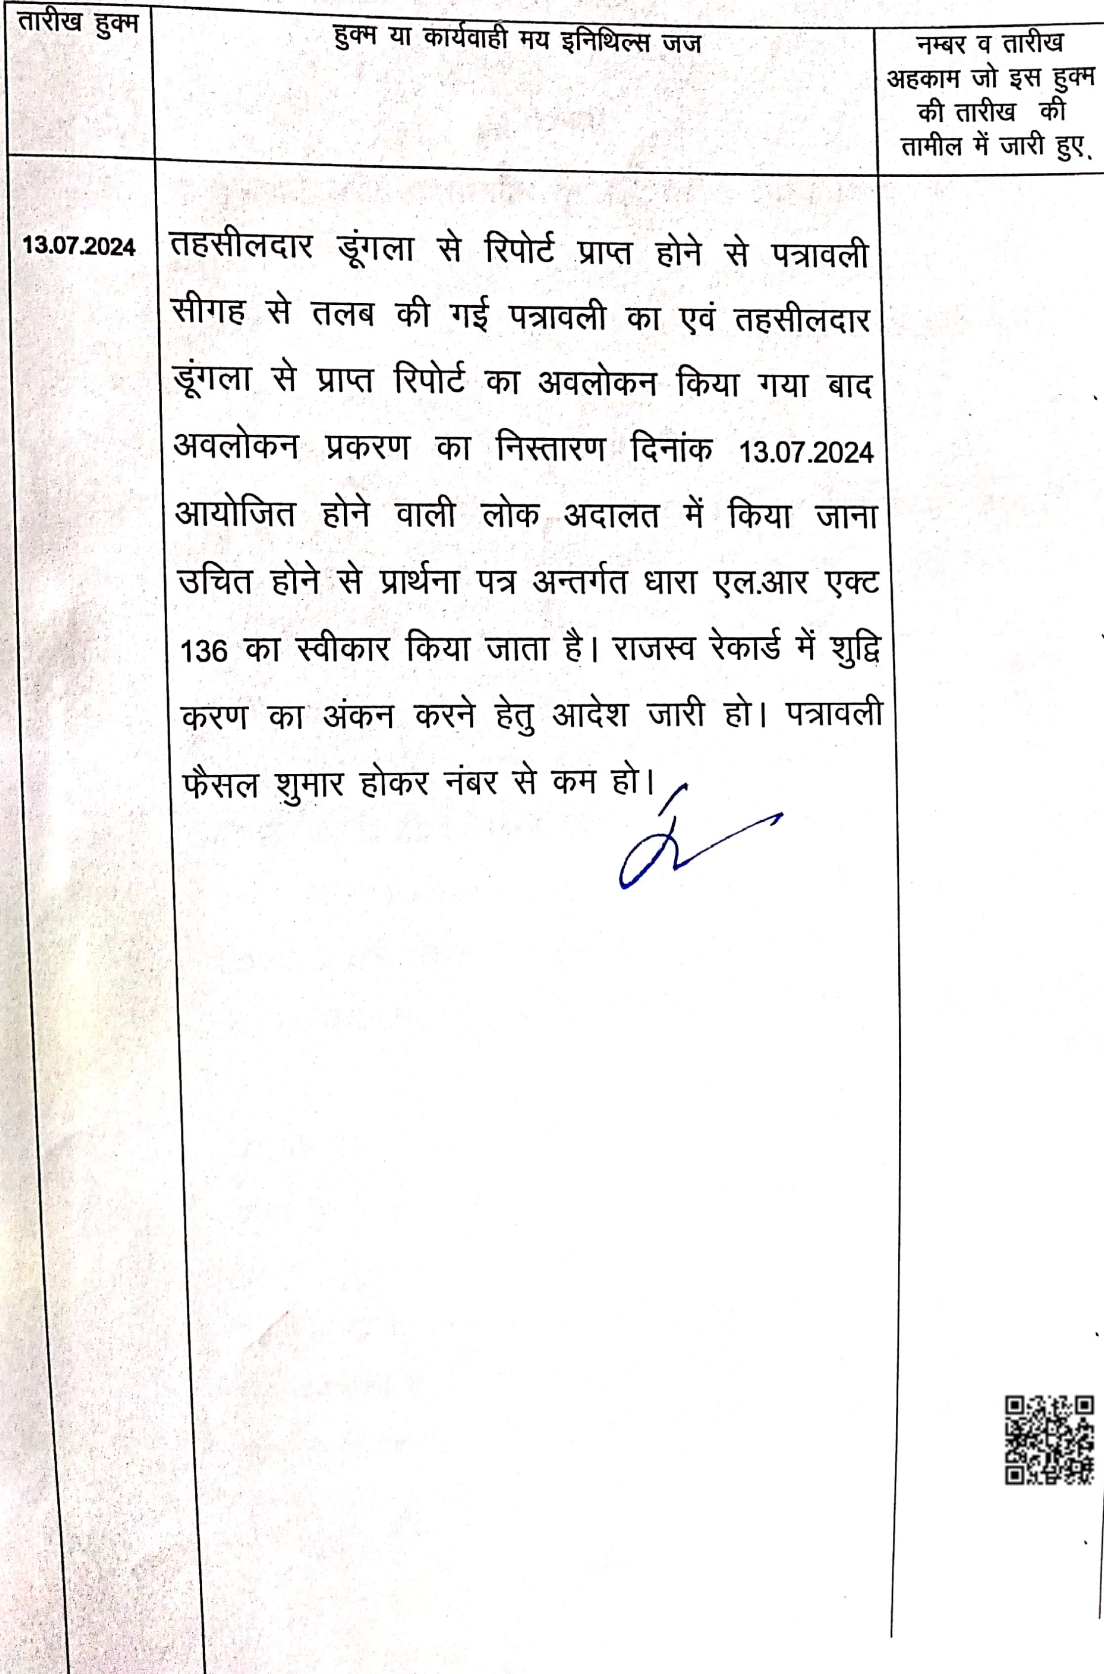 तारीख हुक्म
हुक्म या कार्यवाही मय इनिथिल्स जज
नम्बर व तारीख
अहकाम जो इस हुक्म
की तारीख की
तामील में जारी हुए.
13.07.2024
तहसीलदार डूंगला से रिपोर्ट प्राप्त होने से पत्रावली
सीगह से तलब की गई पत्रावली का एवं तहसीलदार
डूंगला से प्राप्त रिपोर्ट का अवलोकन किया गया बाद
अवलोकन प्रकरण का निस्तारण दिनांक 13.07.2024
आयोजित होने वाली लोक अदालत में किया जाना
उचित होने से प्रार्थना पत्र अन्तर्गत धारा एल.आर एक्ट
136 का स्वीकार किया जाता है। राजस्व रेकार्ड में शुद्वि
करण का अंकन करने हेतु आदेश जारी हो। पत्रावली
फैसल शुमार होकर नंबर से कम हो।